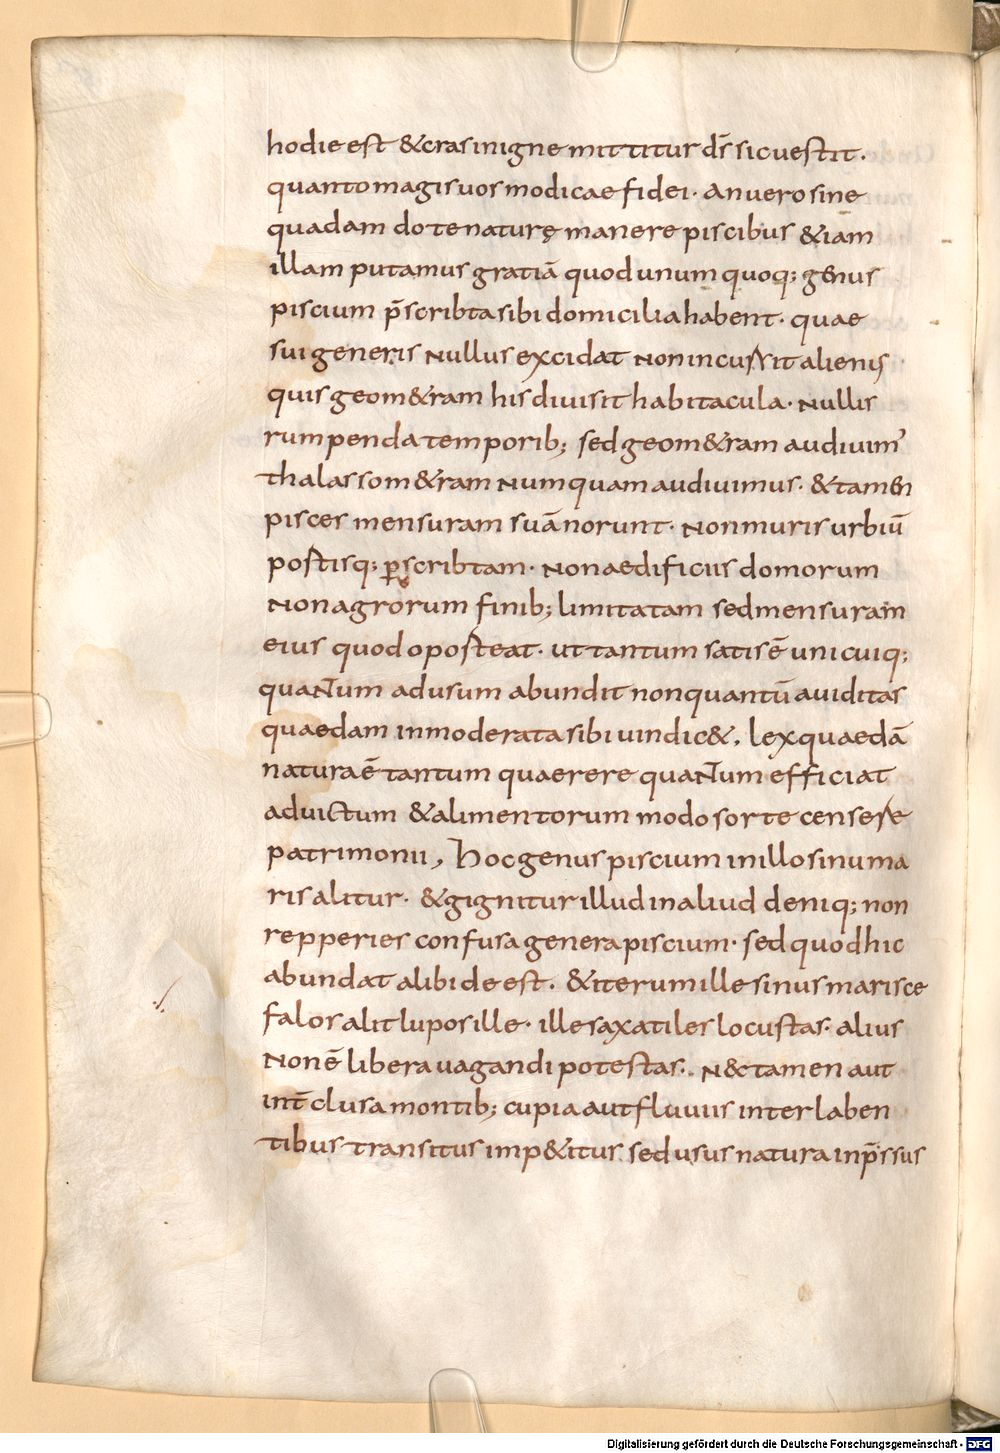 hodie est & cras in igne mittitur d̄s sic uestit.
quanto magis uos modicae fidei· An uero sine
quadam dote naturę manere piscibus & iam
illam putamus gratiā quod unum quoq; genus
piscium p̄scribta sibi domicilia habent· quae
sui generis nullus excidat non incussit alienis
quis geom&ram his diuisit habitacula· nullis
rumpenda temporib; sed geom&ram audiuim᾽
thalassom&ram numquam audiuimus· & tamen
pisces mensuram suā norunt· non muris urbiū
postisq; p̲scribtam· non aedificiis domorum
non agrorum finib; limitatam sed mensuram
eius quod oposteat· ut tantum satis ē unicuiq;
quantum ad usum abundit non quantū auiditas
quaedam inmoderata sibi uindic&, lex quaedā
natura ē tantum quaerere quantum efficiat
ad uictum & alimentorum modo sorte censere
patrimonii, Hoc genus piscium in illo sinu ma
ris alitur· & gignitur illud in aliud deniq; non
repperies confusa genera piscium· sed quod hic
abundat alibi deest. & iterum ille sinus maris ce
falos alit lupos ille· ille saxatiles locustas· alius
non ē libera uagandi potestas.. N&c tamen aut
int̄clusa montib; cupia aut fluuiis interlaben
tibus transitus imp&itus sed usus natura inp̄ssus
Digitalisierung gefördert durch die Deutsche Forschungsgemeinschaft - DFG